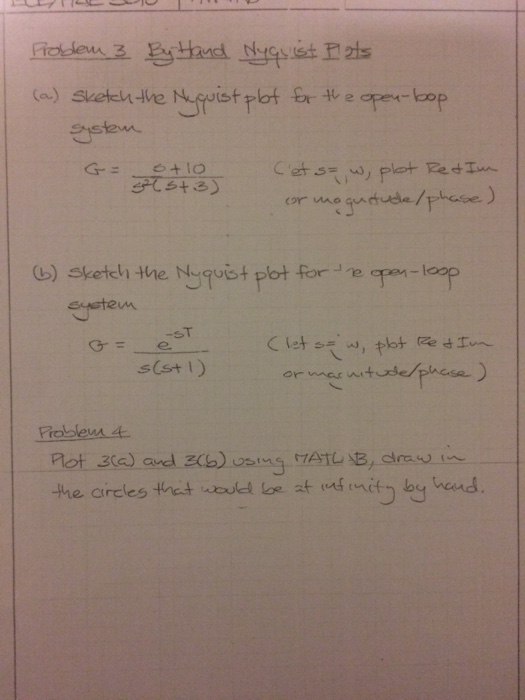 Problem 3 By-Hand Nyquist Plots
(a) Sketch the Nyquist plot for the open-loop
system
G = s+10 / s²(s+3) (let s=jw, plot Re & Im
or magnitude/phase)
(b) Sketch the Nyquist plot for the open-loop
system
G = e^-sT / s(s+1) (let s=jw, plot Re & Im
or magnitude/phase)
Problem 4
Plot 3(a) and 3(b) using MATLAB, draw in
the circles that would be at infinity by hand.